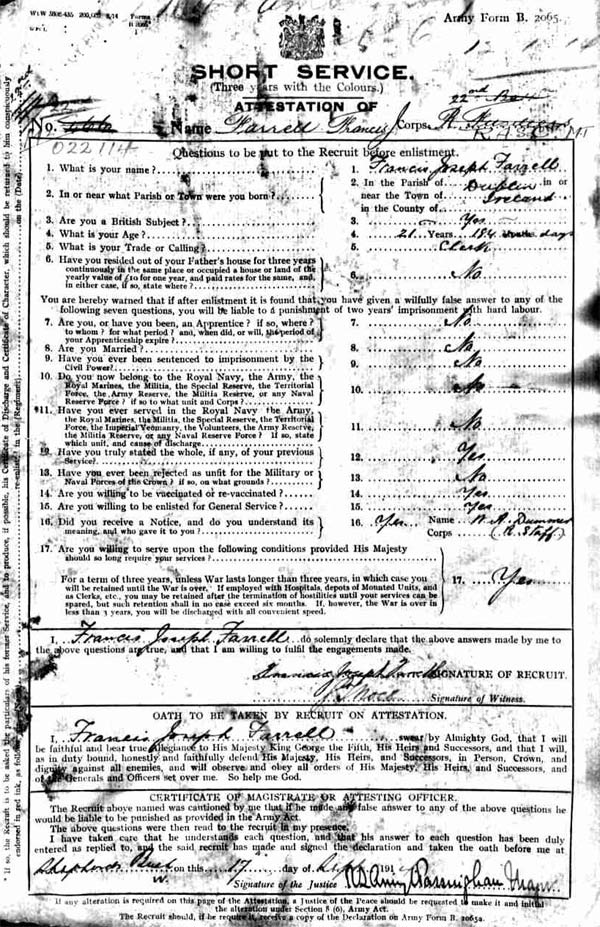 Army Form B. 2065.
SHORT SERVICE.
(Three years with the Colours.)
ATTESTATION OF
No. Name Farrell Francis J Corps
022114
Questions to be put to the Recruit before enlistment.
1. What is your name? 1. Francis Joseph Farrell
2. In or near what Parish or Town were you born? 2. In the Parish of in or
near the Town of Dublin
in the County of Ireland
3. Are you a British Subject? 3. Yes
4. What is your Age? 4. 21 Years 184 days
5. What is your Trade or Calling? 5. Clerk
6. Have you resided out of your Father's house for three years
continuously in the same place or occupied a house or land of the
yearly value of £10 for one year, and paid rates for the same, and,
in either case, if so, state where? 6. No
You are hereby warned that if after enlistment it is found that you have given a wilfully false answer to any of the
following seven questions, you will be liable to a punishment of two years' imprisonment with hard labour.
7. Are you, or have you been, an Apprentice? if so, where? 7. No
to whom? for what period? and, when did, or will, the period of
your Apprenticeship expire?
8. Are you Married? 8. No
9. Have you ever been sentenced to imprisonment by the 9. No
Civil Power?
10. Do you now belong to the Royal Navy, the Army, the
Royal Marines, the Militia, the Special Reserve, the Territorial
Force, the Army Reserve, the Militia Reserve, or any Naval
Reserve Force? if so to what unit and Corps? 10. No
*11. Have you ever served in the Royal Navy the Army,
the Royal Marines, the Militia, the Special Reserve, the Territorial
Force, the Imperial Yeomanry, the Volunteers, the Army Reserve,
the Militia Reserve, or any Naval Reserve Force? If so, state
which unit, and cause of discharge 11. No
12. Have you truly stated the whole, if any, of your previous
Service? 12. Yes
13. Have you ever been rejected as unfit for the Military or
Naval Forces of the Crown? if so, on what grounds? 13. No
14. Are you willing to be vaccinated or re-vaccinated? 14. Yes
15. Are you willing to be enlisted for General Service? 15. Yes
16. Did you receive a Notice, and do you understand its 16. Yes Name
meaning, and who gave it to you? Corps (R. Staff)
17. Are you willing to serve upon the following conditions provided His Majesty
should so long require your services?
For a term of three years, unless War lasts longer than three years, in which case you
will be retained until the War is over. If employed with Hospitals, depots of Mounted Units, and
as Clerks, etc., you may be retained after the termination of hostilities until your services can be
spared, but such retention shall in no case exceed six months. If, however, the War is over in
less than 3 years, you will be discharged with all convenient speed. 17. Yes
I, Francis Joseph Farrell do solemnly declare that the above answers made by me to
the above questions are true, and that I am willing to fulfil the engagements made.
Francis Joseph Farrell SIGNATURE OF RECRUIT.
Signature of Witness.
OATH TO BE TAKEN BY RECRUIT ON ATTESTATION.
I, Francis Joseph Farrell swear by Almighty God, that I will
be faithful and bear true Allegiance to His Majesty King George the Fifth, His Heirs and Successors, and that I will,
as in duty bound, honestly and faithfully defend His Majesty, His Heirs, and Successors, in Person, Crown, and
dignity against all enemies, and will observe and obey all orders of His Majesty, His Heirs and Successors, and
of the Generals and Officers set over me. So help me God.
CERTIFICATE OF MAGISTRATE OR ATTESTING OFFICER.
The Recruit above named was cautioned by me that if he made any false answer to any of the above questions he
would be liable to be punished as provided in the Army Act.
The above questions were then read to the recruit in my presence.
I have taken care that he understands each question, and that his answer to each question has been duly
entered as replied to, and the said recruit has made and signed the declaration and taken the oath before me at
Shepherds Bush on this 17 day of 191
W.
Signature of the Justice
If any alteration is required on this page of the Attestation, a Justice of the Peace should be requested to make it and initial
the alteration under Section 8 (6), Army Act.
The Recruit should, if he require it, receive a copy of the Declaration on Army Form B. 2065a.